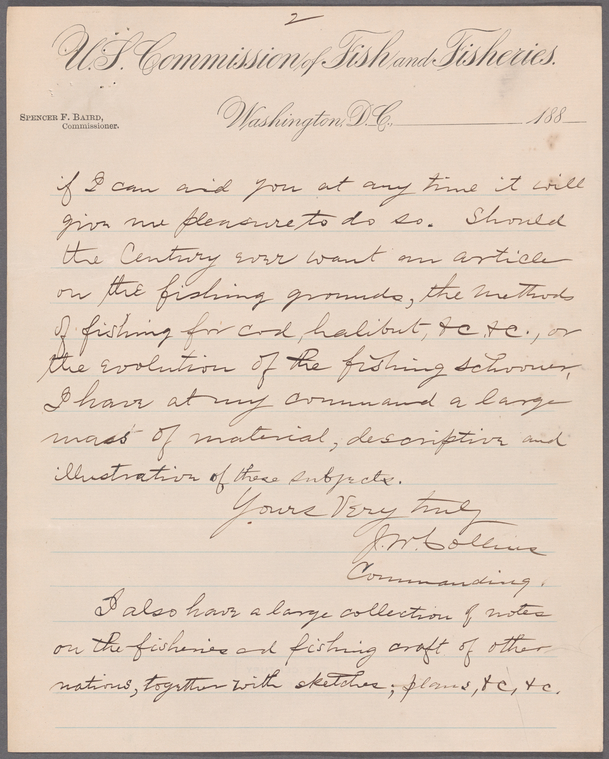 2
U.S. Commission of Fish and Fisheries.
Spencer F. Baird,
Commissioner.
Washington, D.C. 188
if I can aid you at any time it will
give me pleasure to do so. Should
the Century ever want an article
on the fishing grounds, the methods
of fishing for cod, halibut, &c &c., or
the evolution of the fishing schooner,
I have at my command a large
mass of material, descriptive and
illustrative of these subjects.
Yours Very truly
J.W. Collins
Commanding.
I also have a large collection of notes
on the fisheries and fishing craft of other
nations, together with sketches, plans, &c, &c.